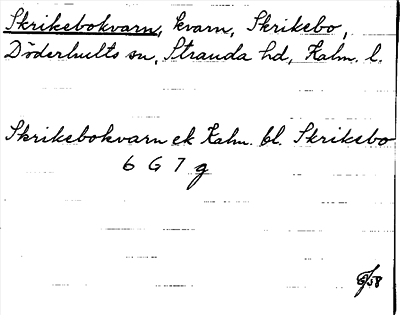 Skrikebokvarn, kvarn, Skrikebo,
Döderhults sn, Stranda hd, Kalm. l.
Skrikebokvarn ek Kalm. bl. Skrikebo
6 G 7 g
58